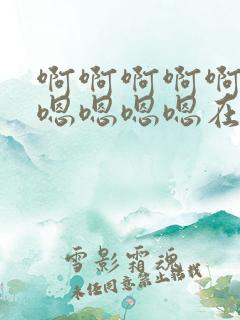 啊啊啊啊啊
嗯嗯嗯嗯在
雪影霜魂
未任同意禁止转找